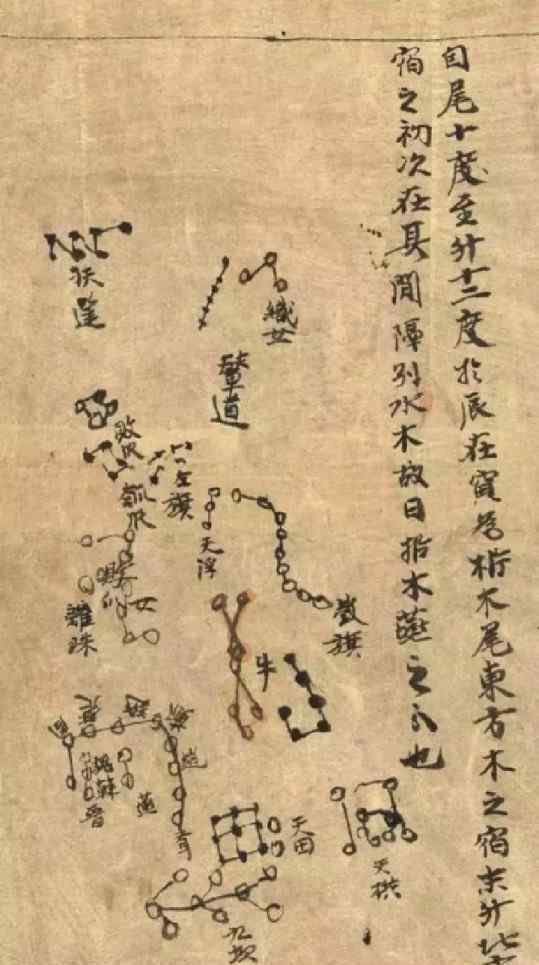 自尾十度至斗十二度於辰在寅為析木尾東方木之宿末斗北
宿之初次在其間隔別水木故曰析木燕之分也
織女
輦道
扶筐
敗瓜
瓠瓜
左旗
天浮
鼓旗
牛
女
離珠
燕
晉
天田
九坎